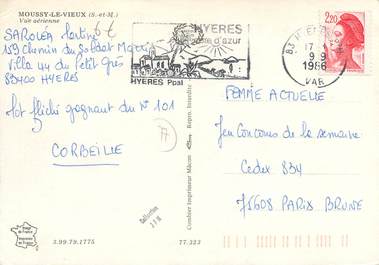 MOUSSY-LE-VIEUX (S.-et-M.)
Vue aérienne
159 Chemin du Soldat
Villa 44 du Petit Grés
83400 HYERES
Mot fléché gagnant du N° 101
CORBEILLE
77
HYERES
d'azur
HYERES Ppal
17
9 9
1986
VAR
2,20
FEMME ACTUELLE
Jeu Concours de la semaine
Cedex 834
75608 PARIS BRUNE
Combier Imprimeur Mâcon
Repro. Interdite
Collection
3.99.79.1775
77.323